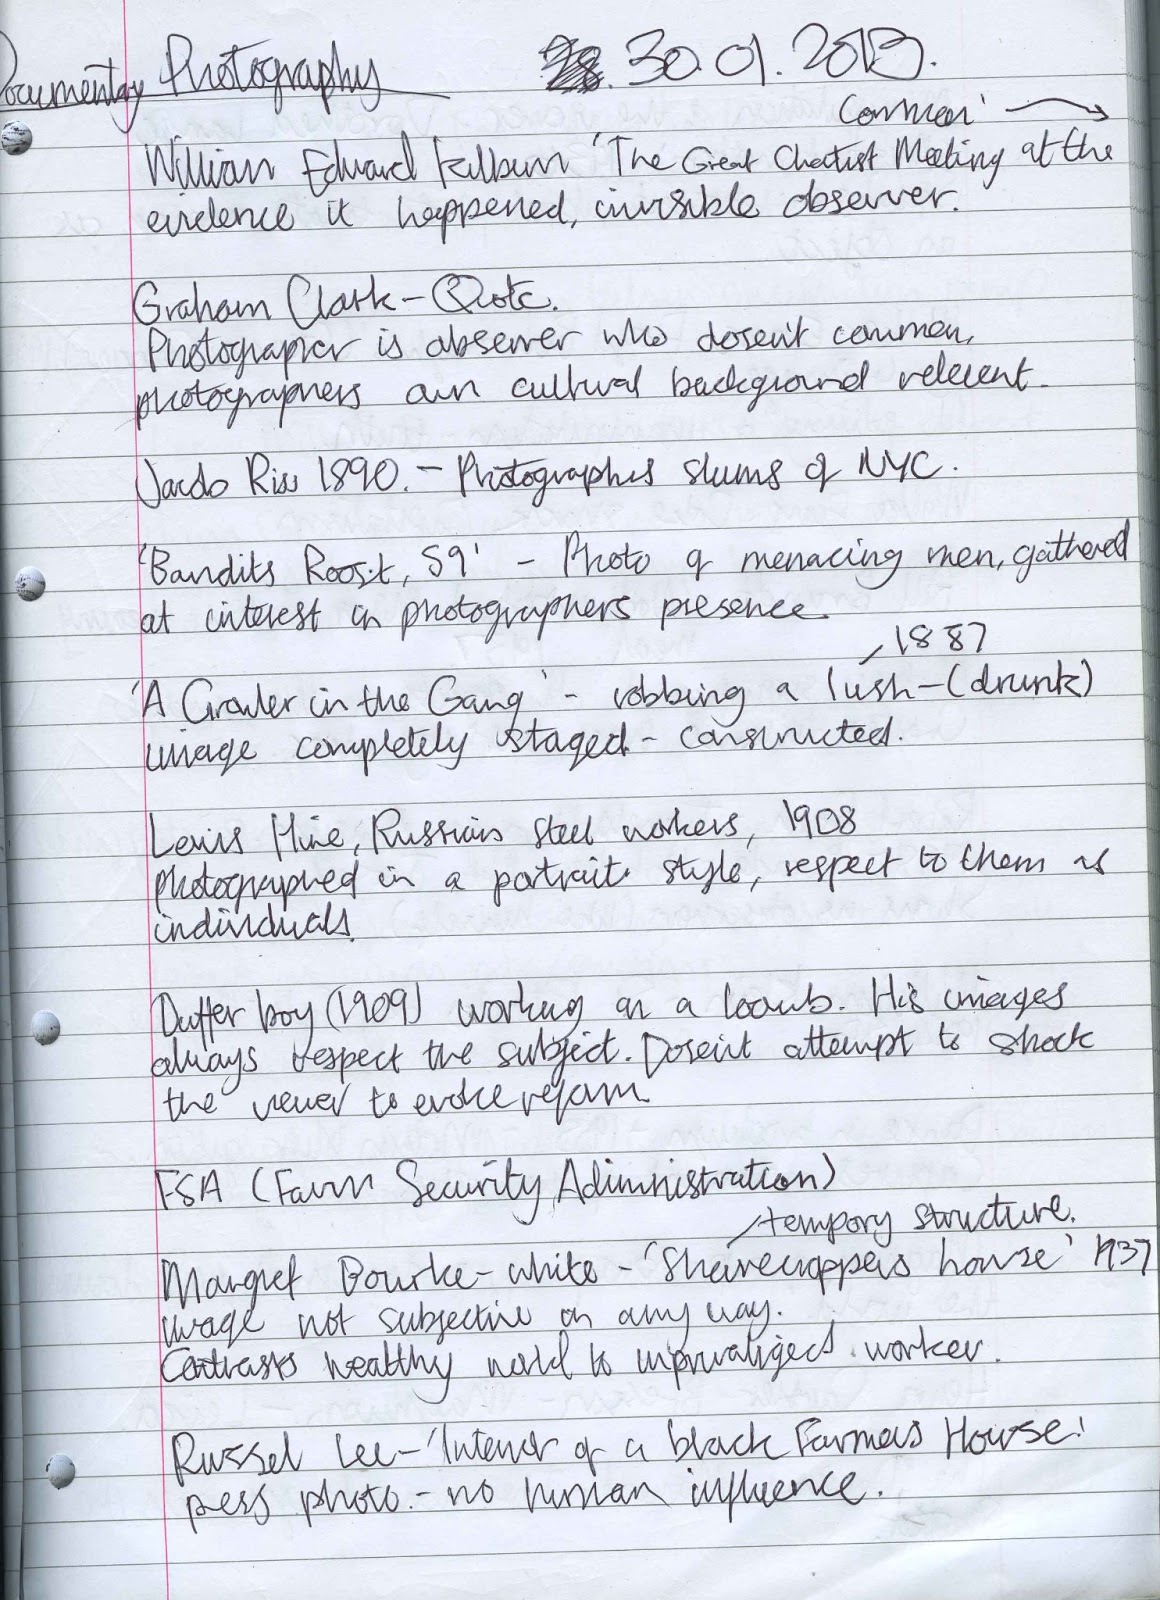 Documentary Photography 30.01.2013.
Common'
William Edward Kilburn 'The Great Chartist Meeting at the
evidence it happened, invisible observer.
Graham Clark - Quote.
Photographer is observer who dosen't common,
photographers own cultural background relevent.
Jacob Riss 1890. - Photographes slums of NYC.
'Bandits Roost, 59' - Photo of menacing men, gathered
at interest in photographers presence.
1887
'A Growler in the Gang' - robbing a lush - (drunk)
image completely staged - constructed.
Lewis Hine, Russian steel workers, 1908
photographed in a portrait style, respect to them as
individuals.
Duffer boy (1909) working on a loomb. His images
always respect the subject. Dosein't attempt to shock
the viewer to evoke reform.
FSA (Farm Security Adiministration)
tempory structure.
Margret Bourke-white - 'Sharecroppers house' 1937
image not subjective in any way.
Contrasts wealthy world to worker.
Russel Lee - 'Interior of a black Farmers House'
press photo. - no human influence.